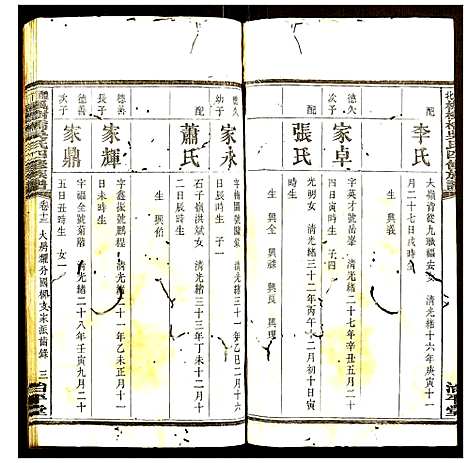 配
李氏
大嶺背從九職福安女 清光緒十六年庚寅十一
月二十七日戌時生
生 興義
德久
次子
家卓
字英才號岳峯 清光緒二十七年辛丑五月二十
日時生 子四
配
張氏
光明女 清光緒三十二年丙午十二月初十日寅
時生
生 興全 興祿 興長 興現
德久
幼子
家永
字 號 清光緒三十三年 二月十六
日辰時生
配
蕭氏
石子嶺洪斌女 清光緒三十三年丁未十二月十
二日辰時生
生 興伯
德善
長子
家輝
字鑫振號鵬程 清光緒二十一年乙未正月十一
日未時生
德善
次子
家鼎
字福全號菊蔭 清光緒二十八年壬寅九月二十
五日丑時生 女一
四修族譜
卷十三
大房耀分國柳支宋派齒錄
三
治平堂